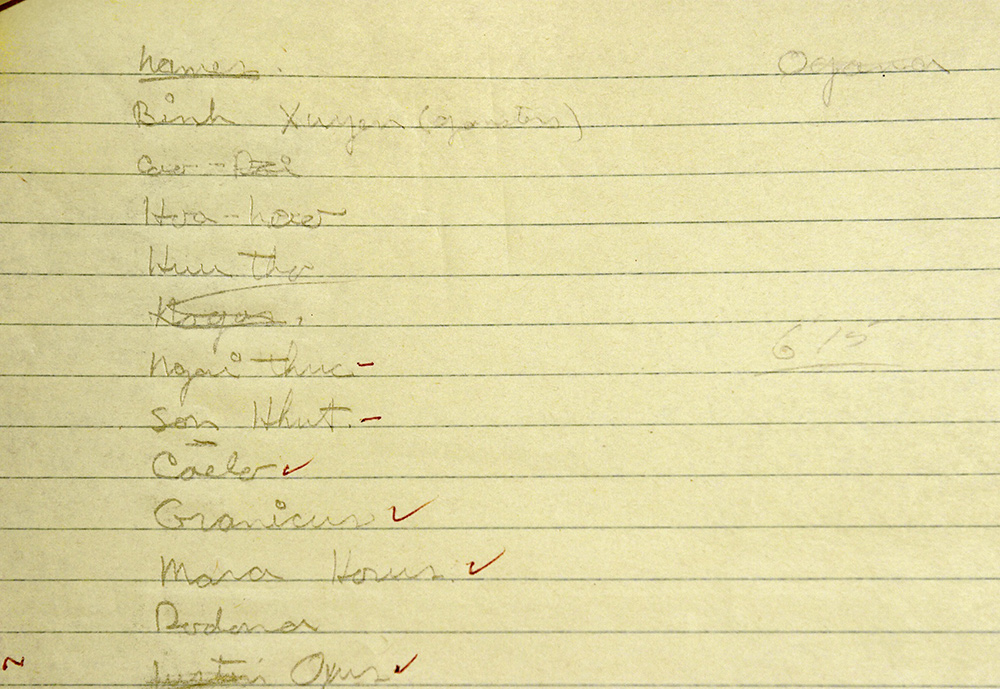 Names. Ogana
Binh Xuyen (gangsters)
Cao-Dai
Hoa-hao
Huu Tho
Ngai thuc -
Son Nhut. -
Caelo ✓
Granicus ✓
Mara Horus ✓
Dodona
Oxus ✓
6 15